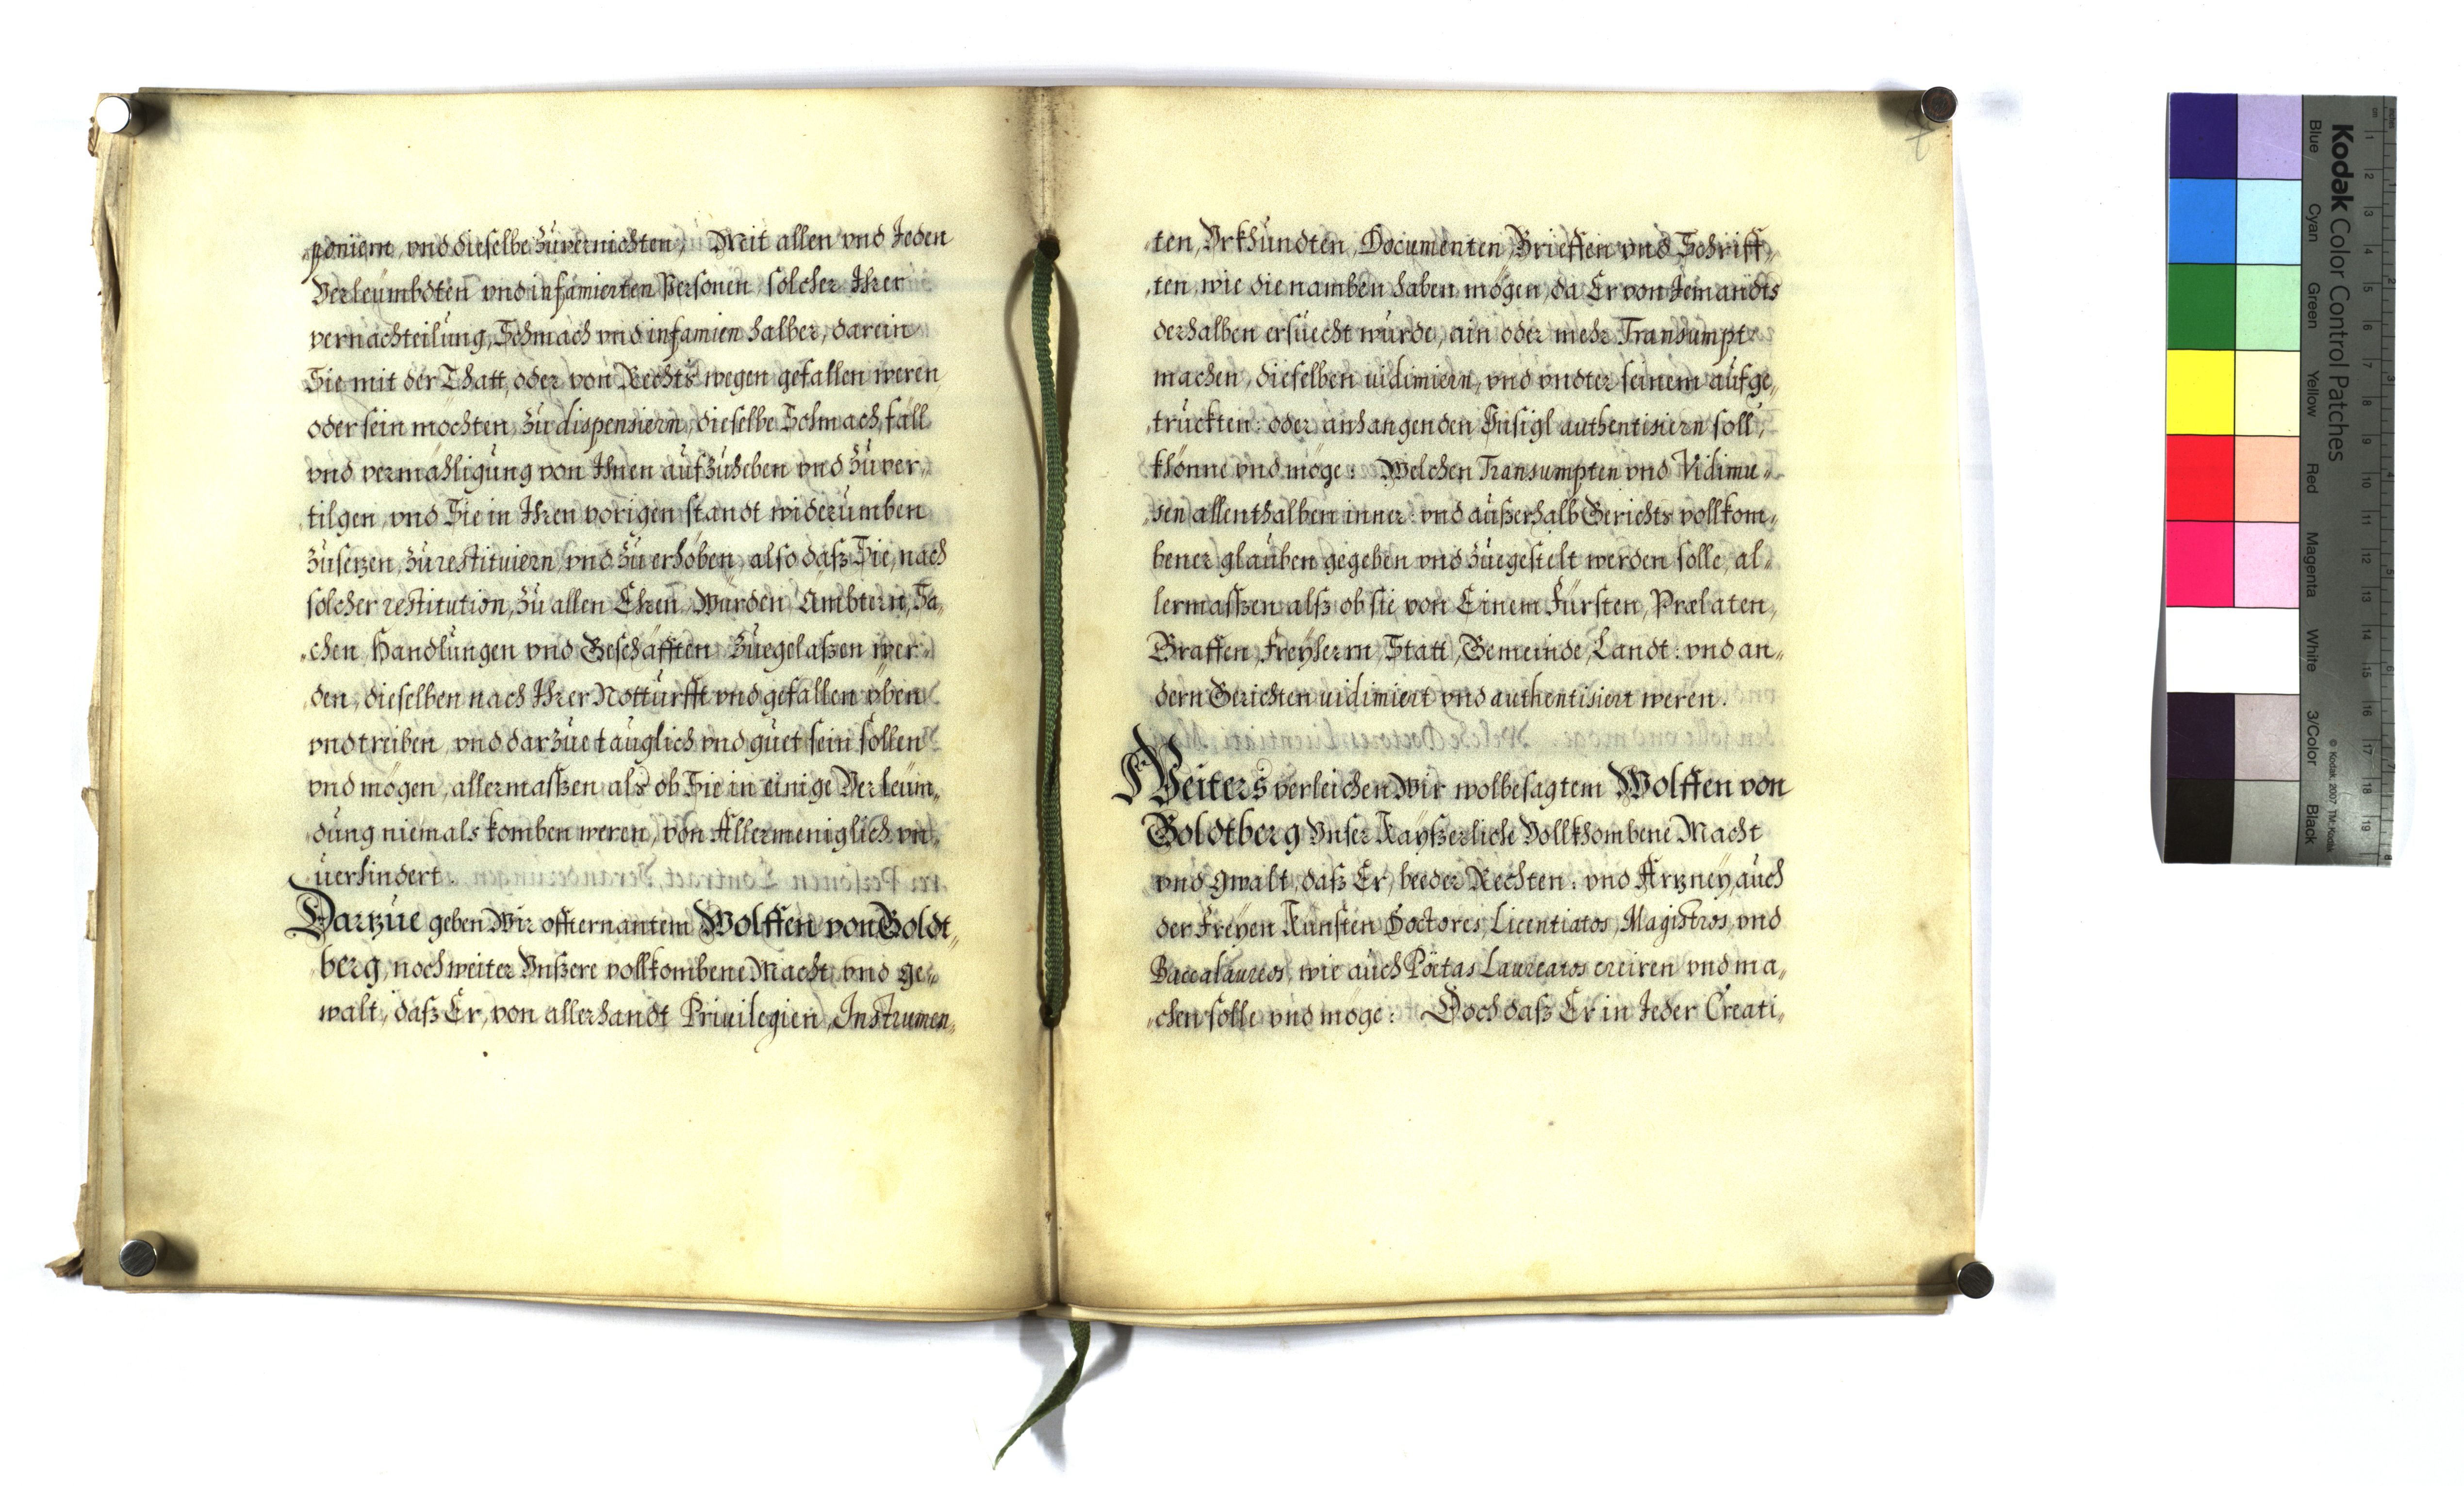 poniern, vnd dieselbe züvernichten, Mit allen vnd Jeden
Verleümbdten vnd infamierten Persónen, solcher Ihrer
vernachteilüng, Schmach vnd infamien halber, darein
Sie mit der Thatt, oder von Rechts wegen gefallen weren
oder sein möchten, zü dispensiern, dieselbe Schmach, fäll
vnd vermähligüng von Ihnen aüfzüheben vnd züver„
tilgen, vnd Sie in Ihren vorigen standt widerümben
züsetzen, zü restituiern, vnd zü erhöben, also daß Sie, nach
solcher restitution, zü allen Ehren, Würden, Ämbtern, Sa„
„chen, Handlüngen vnd Geschäfften züegelaßen wer„
den, dieselben nach Ihrer Nottürfft vnd gefallen yben
vnd treiben, vnd darzüe taüglich vnd güet sein sollen
vnd mögen, allermaßen als ob Sie in einige Verleüm„
düng niemals komben weren, von Allermeniglich vn„
üerhindert.
Darzüe geben Wir offternantem Wolffen von Goldt„
berg, noch weiter Vnßere vollkombene Macht, vnd ge„
walt, daß Er, von allerhandt Priuilegien, Instrumen„
ten, Vrkhündten, Documenten, Brieffen vnd Schriff„
„ten, wie die namben haben mögen, da Er von Jemandts
derhalben ersüecht würde, ain oder mehr Transumpt
machen, dieselben uidimiern, vnd vndter seinem aüfge„
„trückten: oder anhangenden Insigl authentisiern soll,
khönne vnd möge: Welchen Transumpten vnd Vidimu„
„sen allenthalben inner: vnd aüßerhalb Gerichts vollkom„
bener glaüben gegeben vnd züegestelt werden solle, al„
lermaßen alß ob sie von Einem Fürsten, Prælaten,
Graffen, Freyherrn, Statt, Gemeinde, Landt: vnd an„
dern Gerichten uidimiert vnd authentisiert weren.
Weiters verleichen Wir wolbesagtem Wolffen von
Goldtberg Vnser Kayßerliche Vollkhombene Macht
vnd gwalt, daß Er, beeder Rechten: vnd Artzney, aüch
der Freyen Künsten Doctores, Licentiatos, Magistros, vnd
Baccalaureos, wie aüch Pöetas Laureatos creiren vnd ma„
„chen solle vnd möge: Doch daß Er in Jeder Creati„
Kodak Color Control Patches
Blue Cyan Green Yellow Red Magenta White 3/Color Black
© Kodak, 2007 TM: Kodak